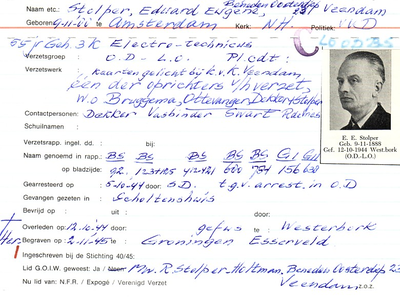 Naam etc: Stolper, Eduard Eugene, Beneden Oosterdiep 23 Veendam
Geboren: 9-11-88 te Amsterdam Kerk: N.H. Politiek:
55 jr Geh. 3 K Electro-technicus L.O O.D B.S
Verzetsgroep O.D - L.O. Pl cdt:
Verzetswerk kaartengelicht bij K.v.K. Veendam,
een der oprichters v/h verzet,
w.o Bruggema, Ottevanger, Dekker, Stolper
Contactpersonen: Dekker Vasbinder Swart
Schuilnaam:
E. E. Stolper
Geb. 9-11-1888
Gef. 12-10-1944 West.bork
(O.D.-L.O.)
Verzetsrapp. ingel. dd. : bij:
Naam genoemd in rapp.: BS BS BS BS BS BS GI GII
op bladzijde: 92 600 784 156
Gearresteerd op 5-10-44 door: S.D. t.g.v. arrest. in O.D
Gevangen gezeten in: Scholtenshuis
Bevrijd op : uit door:
Overleden op: 12.10.44 gefus te Westerbork door:
Her Begraven op: 2-11-45 te: Groningen Esserveld
Ingeschreven bij de Stichting 40/45:
Lid G.O.I.W. geweest: Ja / Neen Mw. R. Stolper-Holtman, Beneden Oosterdiep 23
Nu lid van: N.F.R. / Expogé / Verenigd Verzet Veendam